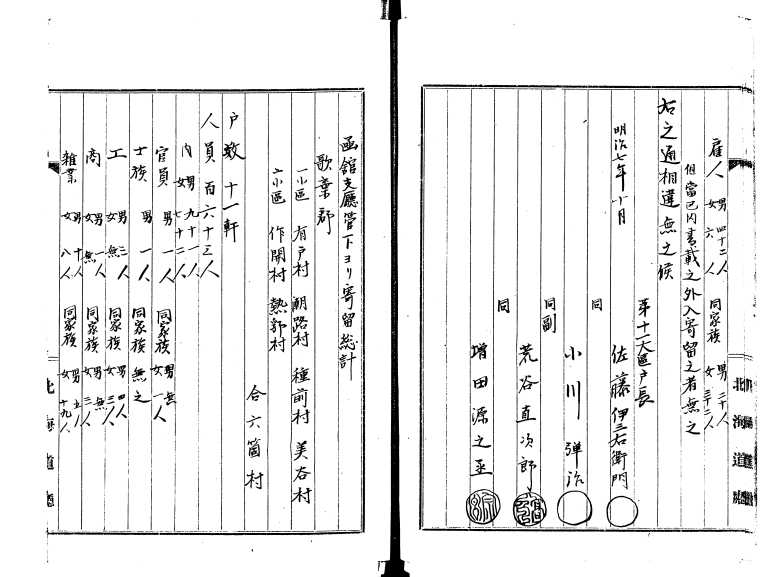 雇人 男 四十二人 女 六人 同家族 男 二十人 女 三十二人
但當巳内書載之外入寄留之者無之
右之通相違無之候
明治七年十月
第十一大區戸長
佐藤伊三右衛門
同 小川弾治
同副 荒谷直次郎
同 増田源之丞
北海道廳
函館支廳管下ヨリ寄留総計
歌棄郡
一小區 有戸村 朝路村 種前村 美谷村
六小區 作開村 熱郛村
合六箇村
戸数 十一軒
人員 百六十三人
内 男 九十一人 女 七十二人
官員 男 一人 同家族 男 無 女 一人
士族 男 一人 同家族 無之
工 男 二人 女 無 同家族 男 四人 女 三人
商 男 一人 女 無 同家族 男 無 女 三人
雜業 男 十人 女 八人 同家族 男 五人 女 十九人
北海道廳